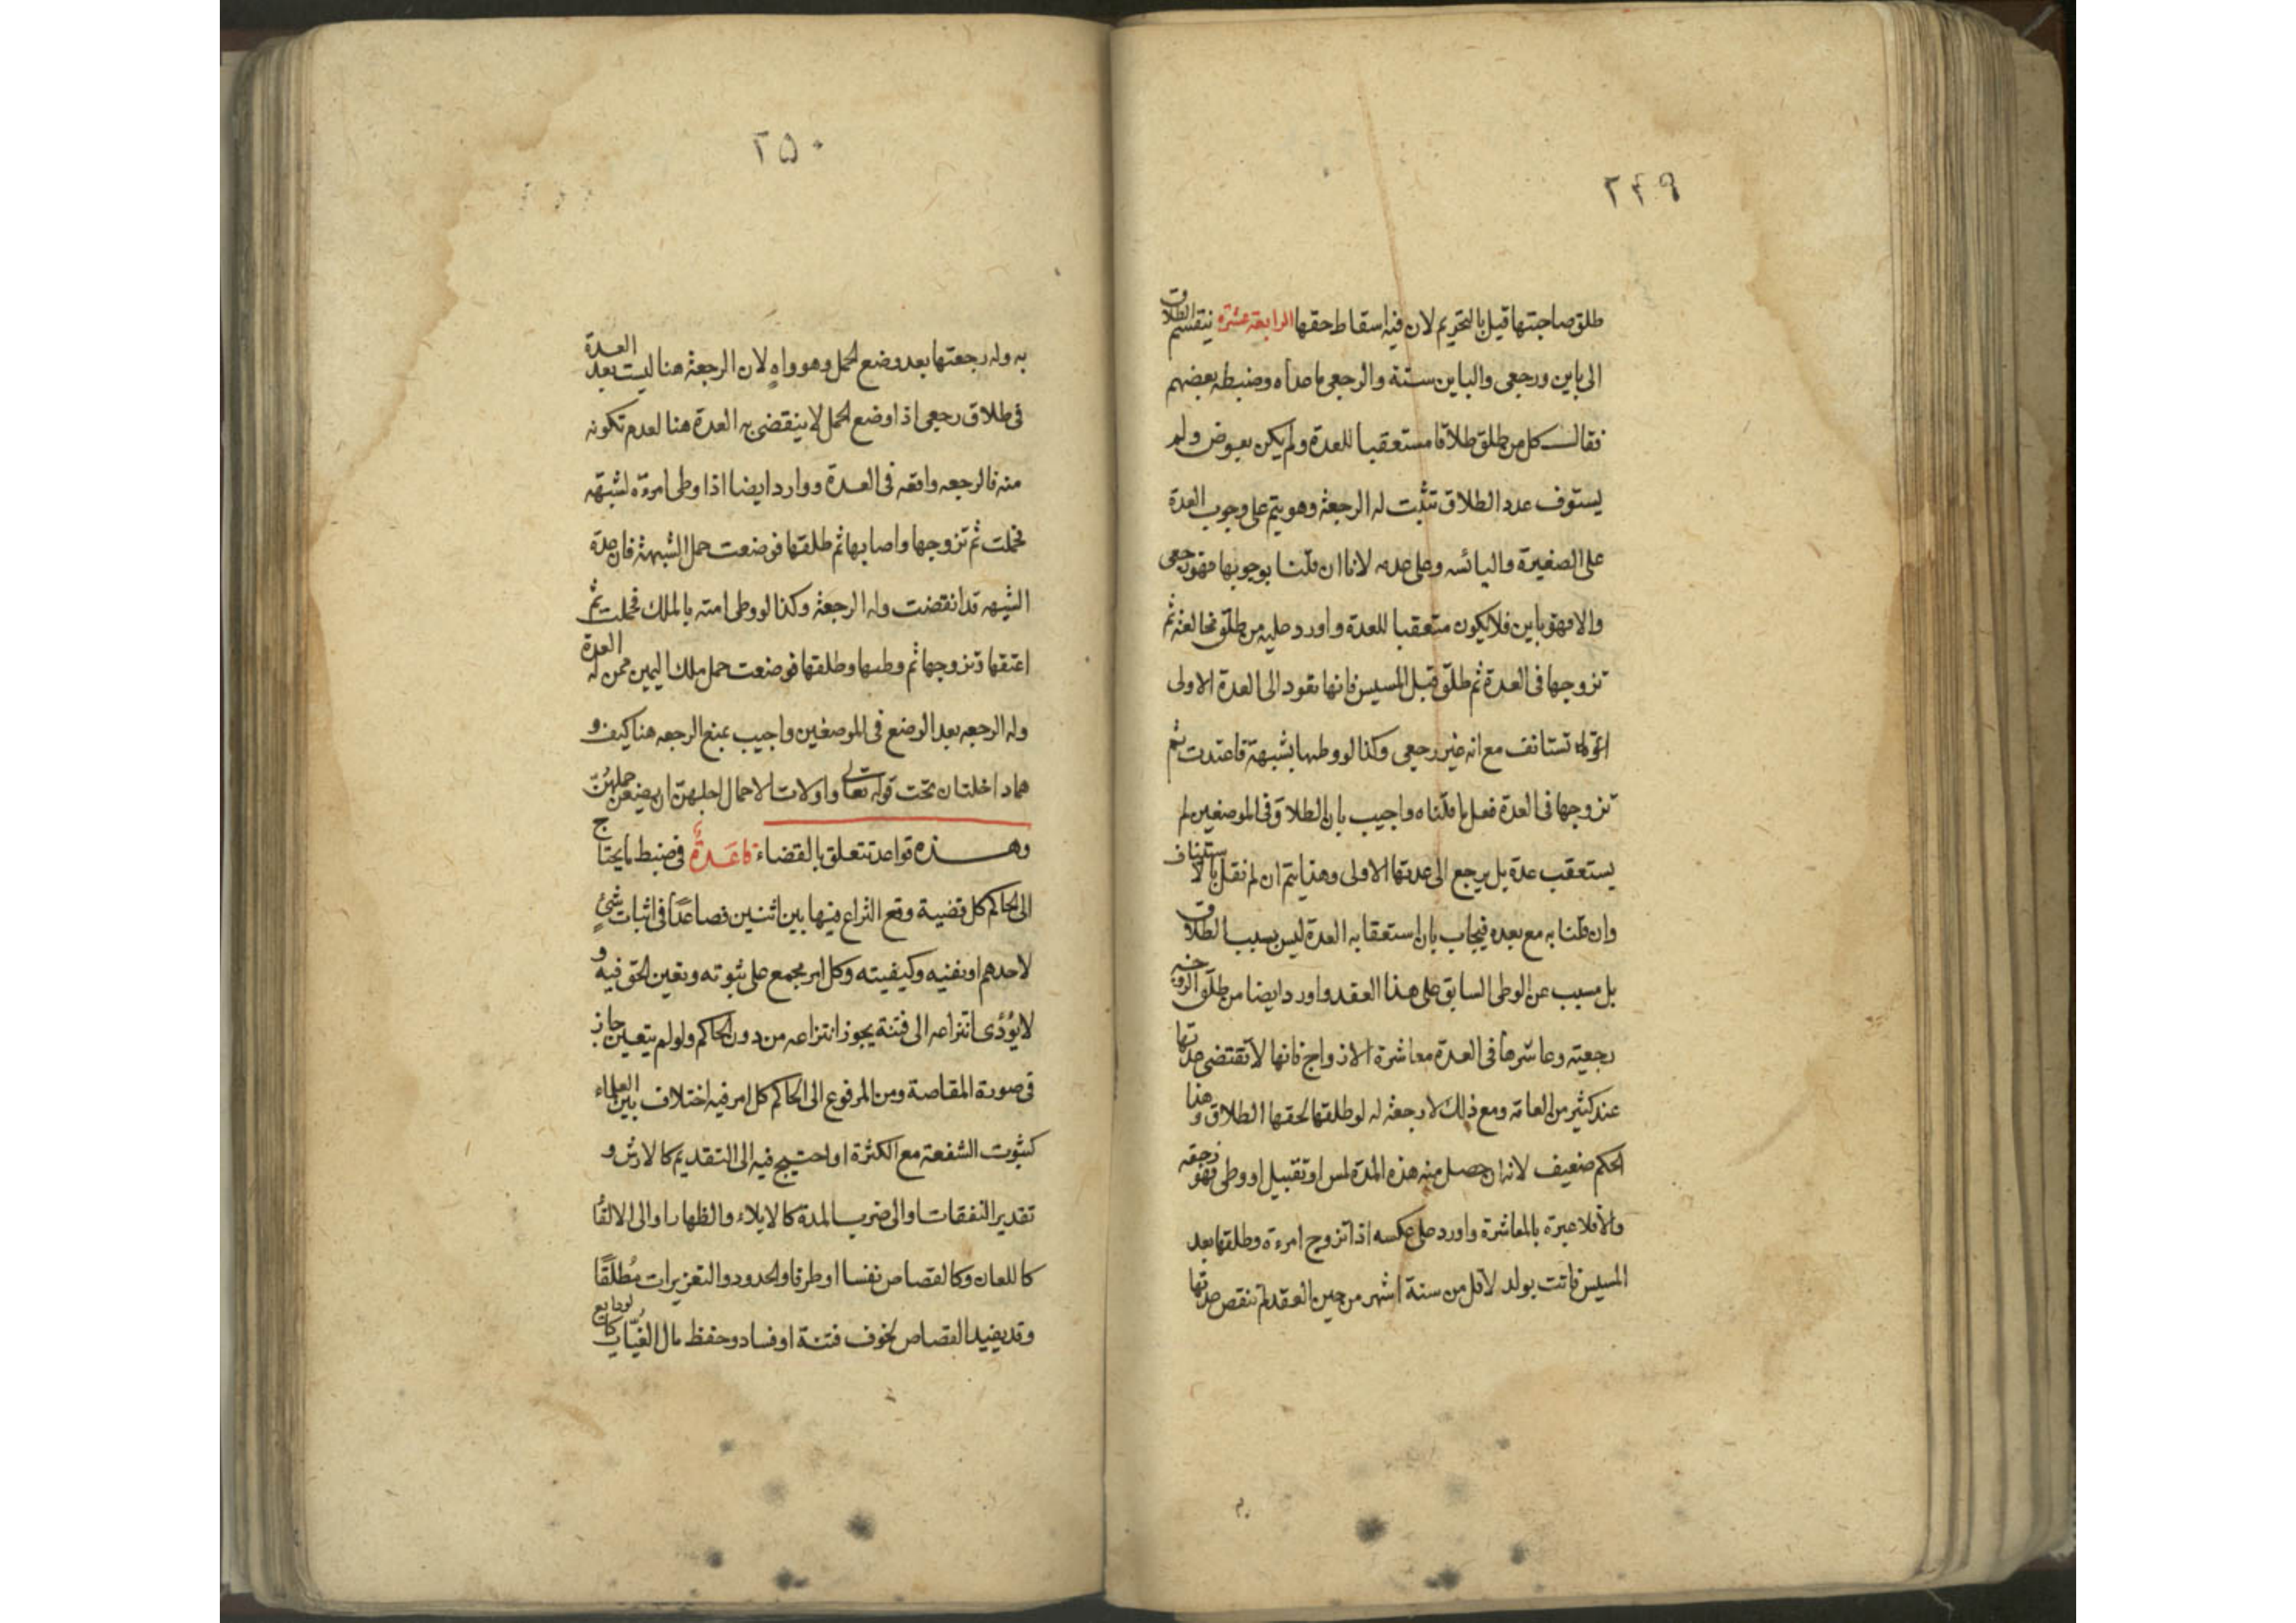 ۲۴۹
طلق صاحبتها قيل بالتحريم لان فيه اسقاط حقها الرابعة عشرة ينقسم الطلاق
الى باين ورجعى والباين ستة والرجعى ما عداه وضبطه بعضهم
فقال كل من طلق طلاقا مستعقبا للعدة ولم يكن بعوض ولم
يستوف عدد الطلاق تثبت له الرجعة وهو يتم على وجوب العدة
على الصغيرة واليائسه وعلى عدمه لانا ان قلنا بوجوبها فهو رجعى
والا فهو باين فلا يكون متعقبا للعدة واورد عليه من طلق مخالعة ثم
تزوجها فى العدة ثم طلق قبل المسيس فانها تعود الى العدة الاولى
تستانف مع انه غير رجعى وكذا لو وطيها بشبهة فاعتدت ثم
تزوجها فى العدة فعل ما قلناه واجيب بان الطلاق فى الموضعين لم
يستعقب عدة بل يرجع الى عدتها الاولى وهذا يتم ان لم نقل بالاستيناف
وان قلنا به مع بعده فيجاب بان استعقابه العدة ليس بسبب الطلاق
بل مسبب عن الوطى السابق على هذا العقد واورد ايضا من طلق الزوجة
رجعيته وعاشرها فى العدة معاشرة الازواج فانها لا تقتضى عدتها
عند كثير من العامة ومع ذلك لا رجعة له لو طلقها لحقها الطلاق وهذا
الحكم ضعيف لانه ان حصل منه هذه المدة لمس او تقبيل او وطى فهو رجعة
والا فلا عبرة بالمعاشرة واورد على عكسه اذا تزوج امرءة وطلقها بعد
المسيس فاتت بولد لاقل من ستة اشهر من حين العقد لم تنقص عدتها
۲۵۰
به وله رجعتها بعد وضع الحمل وهو واهٍ لان الرجعة هنا ليست بعد العدة
فى طلاق رجعى اذا وضع الحمل لا ينقضى به العدة هنا لعدم تكونه
منه فالرجعه واقعه فى العدة ووارد ايضا اذا وطى امرءة لشبهة
فحملت ثم تزوجها واصابها ثم طلقها فوضعت حمل الشبهة فان عدة
الشبهه قد انقضت وله الرجعة وكذا لو وطى امته بالملك فحملت ثم
اعتقها وتزوجها ثم وطيها وطلقها فوضعت حمل ملك اليمين فمن له العدة
وله الرجعه بعد الوضع فى الموضعين واجيب بمنع الرجعه هنا كيف و
هما داخلتان تحت قوله تعالى واولات الاحمال اجلهن ان يضعن حملهن
وهذه قواعد تتعلق بالقضاء قاعدة فى ضبط ما يحتاج
الى الحاكم كل قضية وقع النزاع فيها بين اثنين فصاعدًا فى اثبات شئٍ
لاحدهم او نفيه وكيفيته وكل امر مجمع على ثبوته وتعين الحق فيه و
لا يؤدى انتزاعه الى فتنة يجوز انتزاعه من دون الحاكم ولو لم يتعين جاز
فى صورة المقاصة ومن المرفوع الى الحاكم كل امر فيه اختلاف بين العلماء
كثبوت الشفعة مع الكثرة او احتيج فيه الى التقديم كالارش و
تقدير النفقات والى ضرب المدة كالايلاء والظهار او الى الالقا
كاللعان وكالقصاص نفسا او طرفا والحدود والتعزيرات مُطلقًا
وقد يفيد القصاص لخوف فتنة او فساد وحفظ مال الغيّاب